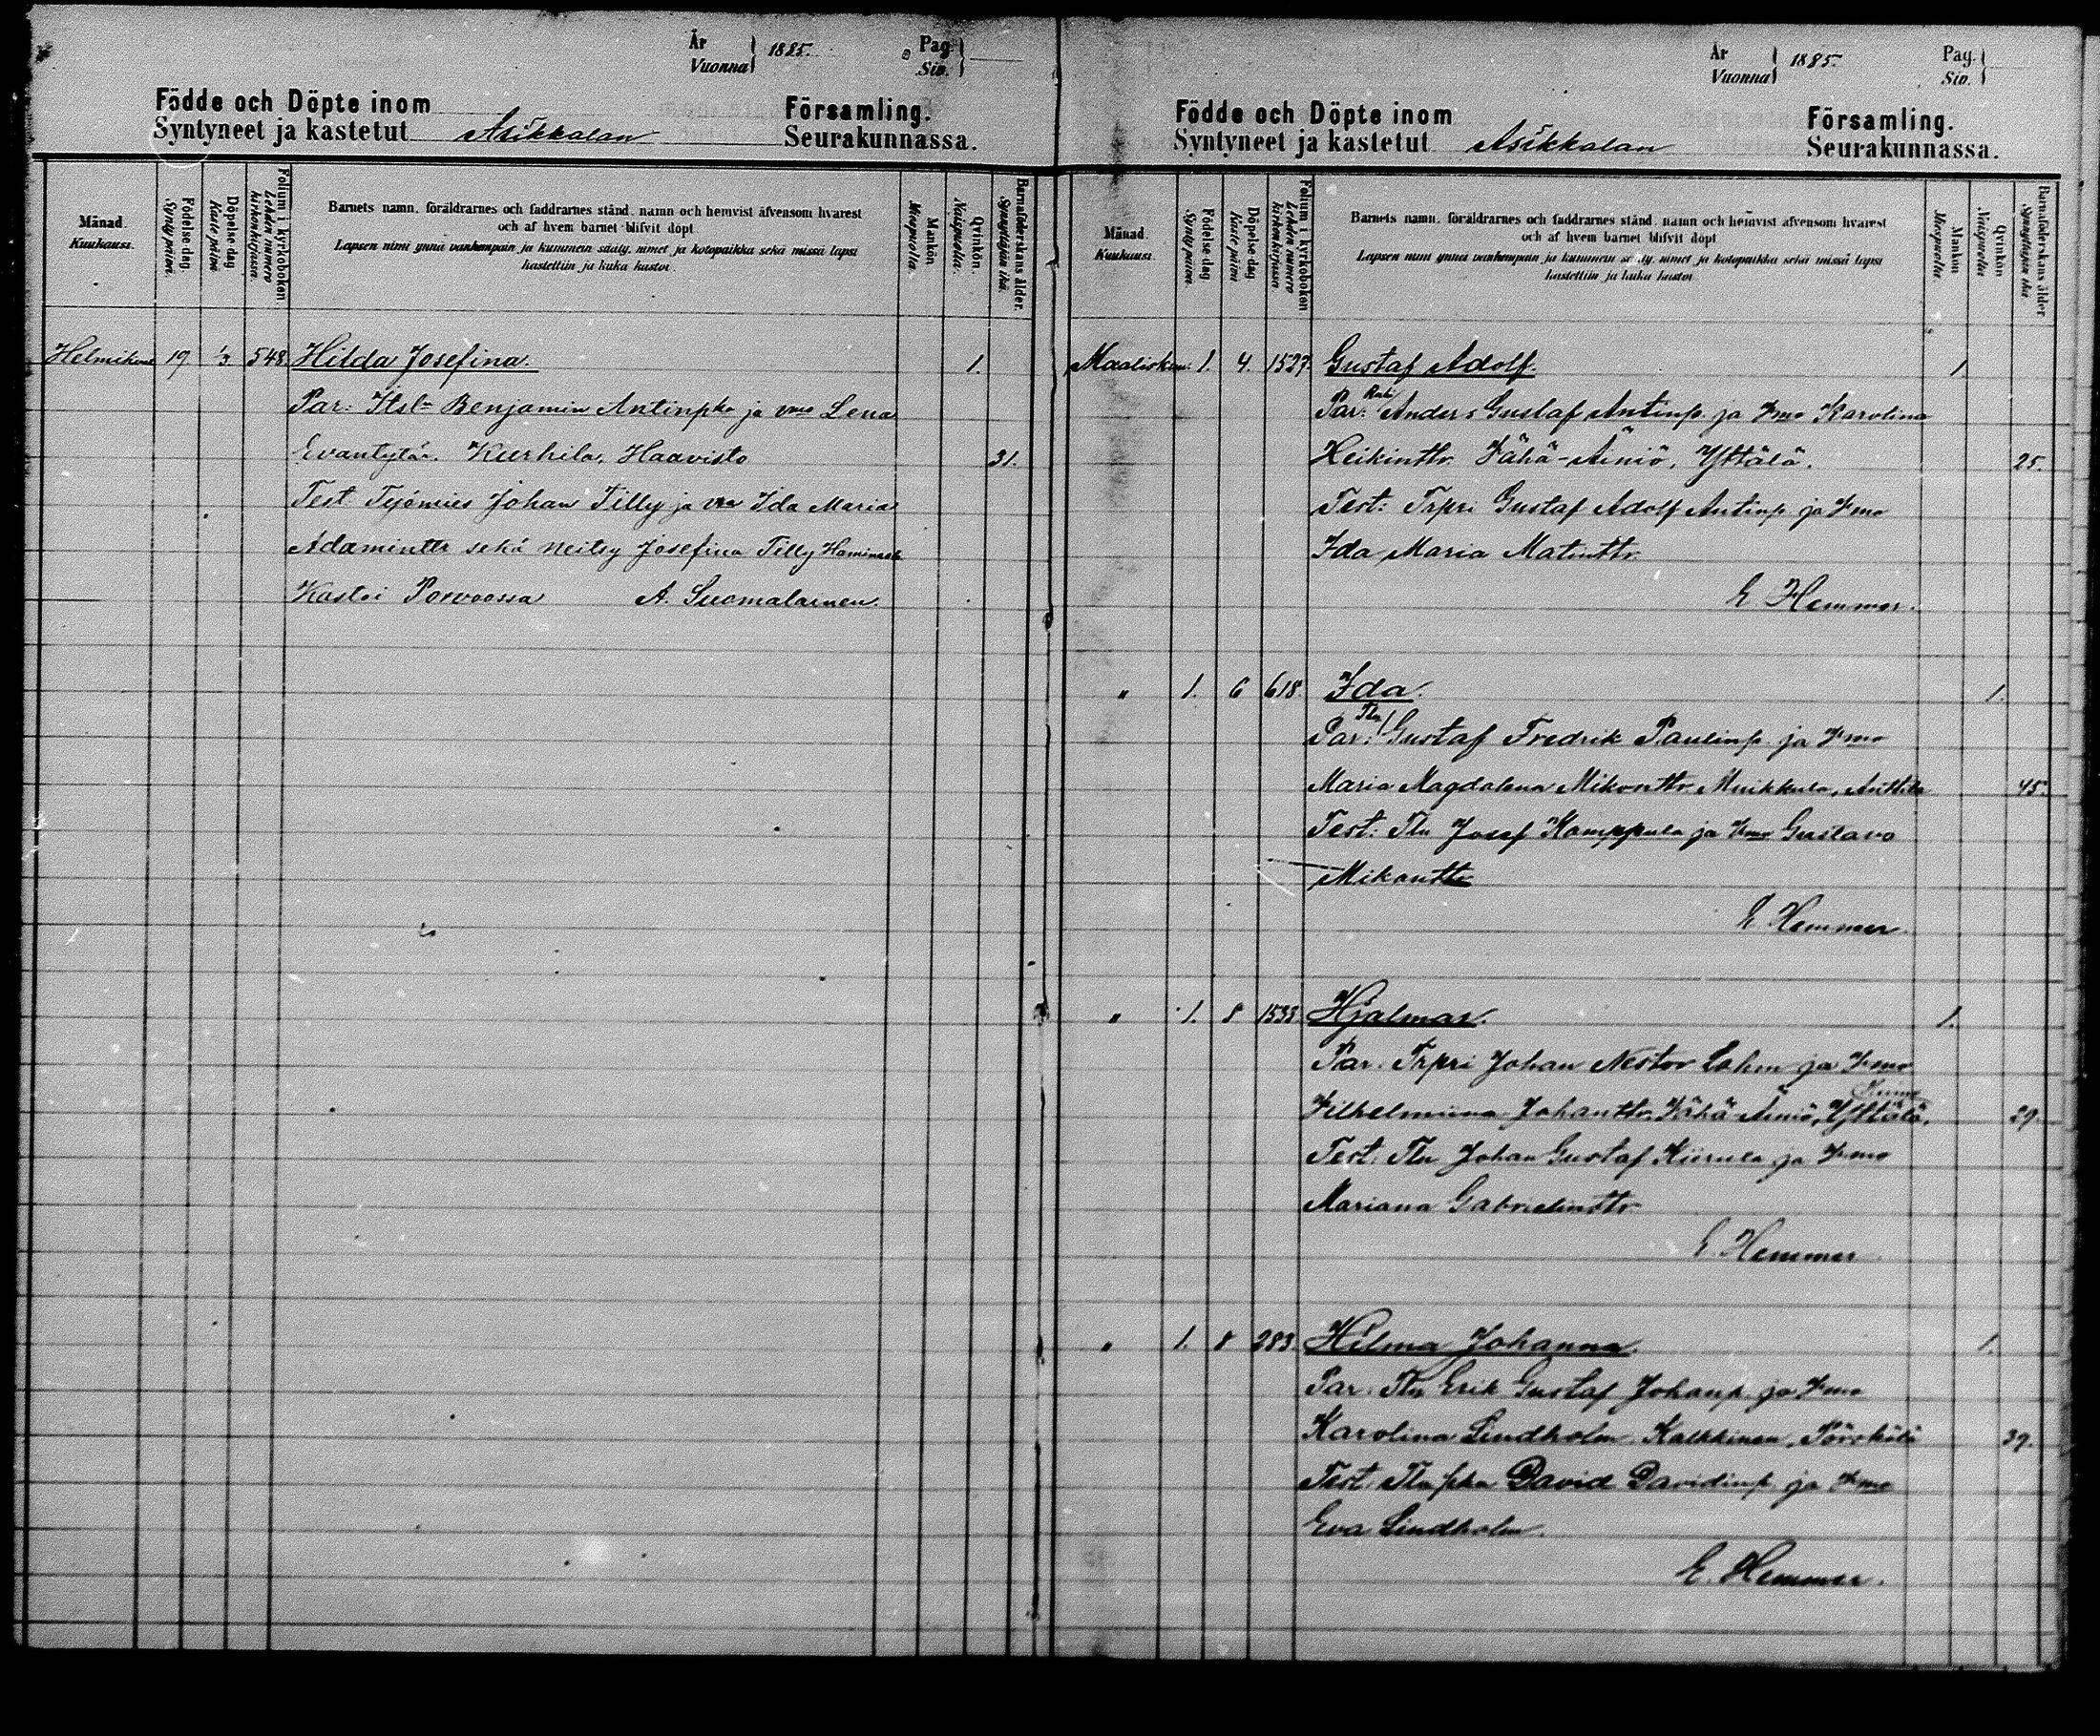 År
Vuonna } 1885.
Pag.
Siv. }
Födde och Döpte inom
Syntyneet ja kastetut Asikkalan
Församling.
Seurakunnassa.
Månad.
Kuukausi.
Födelse dag
Syntypäivä.
Döpelse dag
Kaste päivä
Folium i kyrkoboken
Lehden numero
kirkonkirjassa.
Barnets namn, föräldrarnes och faddrarnes stånd, namn och hemvist äfvensom hvarest
och af hvem barnet blifvit döpt
Lapsen nimi ynnä vanhempain ja kummein sääty, nimet ja kotopaikka sekä missä lapsi
kastettiin ja kuka kastoi.
Mankön
Miespuolia.
Qvinkön.
Naispuolia.
Barnaföderskans ålder.
Synnyttäjän ikä.
Helmikuu 19. 1/3. 548. Hilda Josefina. 1.
Par: Itsl. Benjamin Antinpka ja vmo Lena
Evantytär. Kurhila, Haavisto 31.
Test. Työmies Johan Tilly ja vmo Ida Maria
Adaminttr sekä neitsy Josefina Tilly
Kastoi Porvoossa A. Suomalainen.
År
Vuonna } 1885.
Pag.
Siv. }
Födde och Döpte inom
Syntyneet ja kastetut Asikkalan
Församling.
Seurakunnassa.
Månad.
Kuukausi.
Födelse dag
Syntypäivä.
Döpelse dag.
Kaste päivä
Folium i kyrkoboken
Lehden numero
kirkonkirjassa
Barnets namn, föräldrarnes och faddrarnes stånd, namn och hemvist äfvensom hvarest
och af hvem barnet blifvit döpt
Lapsen nimi ynnä vanhempain ja kummein sääty, nimet ja kotopaikka sekä missä lapsi
kastettiin ja kuka kastoi
Mankön
Miespuolia.
Qvinkön
Naispuolia.
Barnaföderskans ålder
Synnyttäjän ikä
Maaliskuu. 1. 4. 1527. Gustaf Adolf. 1.
Par: Anders Gustaf Antinp. ja Vmo Karolina
Heikinttr. Vähä-Äiniö, Yttälä. 25.
Test: Trpri Gustaf Adolf Antinp ja Vmo
Ida Maria Matinttr.
E Hemmer.
" 1. 6 618. Ida. 1.
Tln
Par: Gustaf Fredrik Paulinp. ja Vmo
Maria Magdalena Mikonttr. Muikkula, Anttila 45.
Test: Tln Josef Kamppula ja Vmo Gustava
Mikonttr
E Hemmer.
" 1. 8 1533 Hjalmar. 1.
Par: Trpri Johan Nestor Lohm ja Vmo
Vilhelmiina Johanttr. Vähä Äiniö, Yttälä. 29.
Test: Tln Johan Gustaf Kiirula ja Vmo
Mariana Gabrielinttr
E. Hemmer
" 1. 8 283. Hilma Johanna. 1.
Par: Tln Erik Gustaf Johanp. ja Vmo
Karolina Lindholm. Kalkkinen, Pörhölä 39.
Test: Tln pka David Davidinp. ja Vmo
Eva Lindholm.
E. Hemmer.